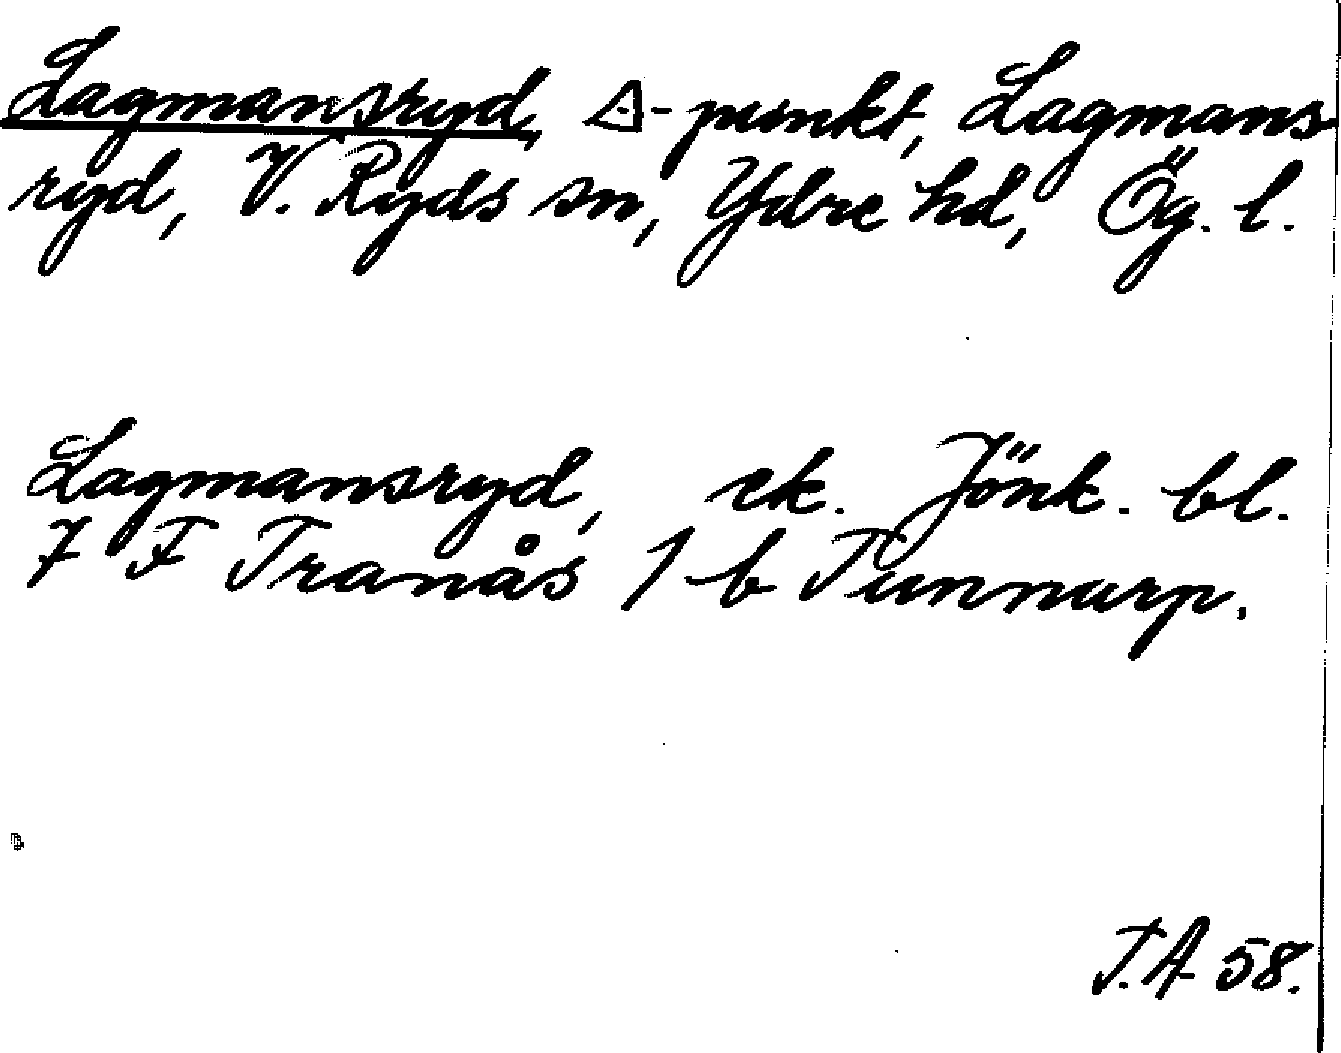 Lagmansryd, △-punkt, Lagmans-
ryd, V. Ryds sn, Ydre hd, Ög. l.
Lagmansryd, ek. Jönk. bl.
7 F Tranås 1 b Tunnarp.
T.A 58.